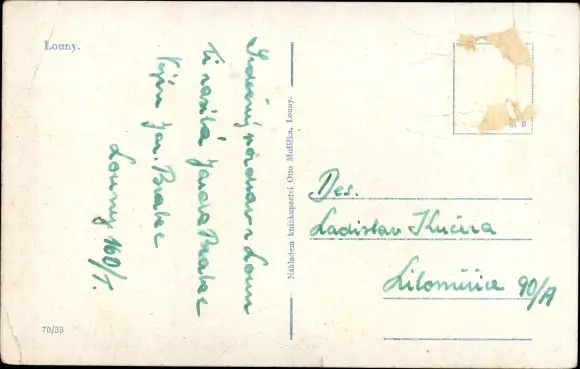 Louny.
Srdečný pozdrav z Loun
ti zasílá Jarda Brabec
Vojín Jar. Brabec
Louny 160/I.
Nákladem knihkupectví Otto Mužíka, Louny.
Des.
Ladislav Kučera
Litoměřice 90/A
70/39